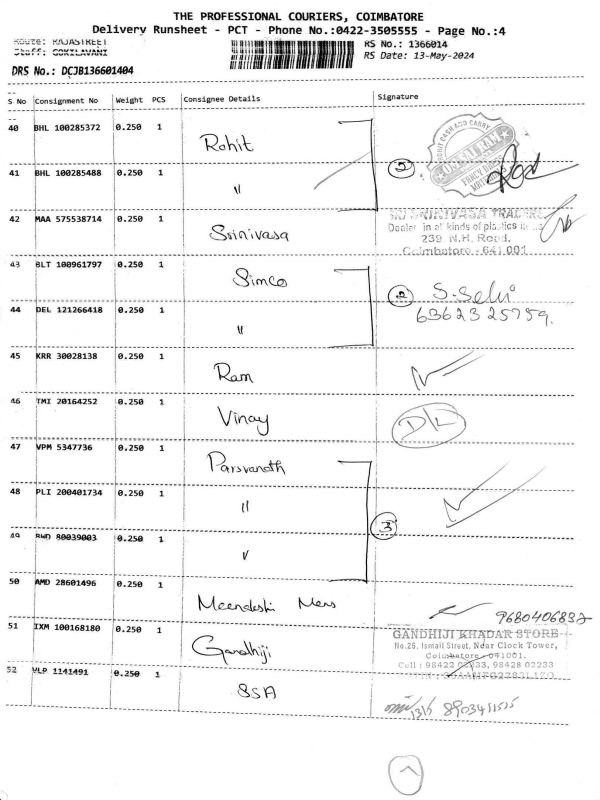 THE PROFESSIONAL COURIERS, COIMBATORE
Delivery Runsheet - PCT - Phone No.:0422-3505555 - Page No.:4
Route: RAJASTREET
Staff: GOKILAVANI
RS No.: 1366014
RS Date: 13-May-2024
DRS No.: DCJB136601404
S No Consignment No Weight PCS Consignee Details Signature
40 BHL 100285372 0.250 1 Rohit
41 BHL 100285488 0.250 1 " 2
42 MAA 575538714 0.250 1 Srinivasa
SRI SRINIVASA TRADERS
Dealer in all kinds of plastics
239, N.H. Road,
Coimbatore - 641 001
43 BLT 100961797 0.250 1 Simco
2 S. Selvi
44 DEL 121266418 0.250 1 " 63623 25759.
45 KRR 30028138 0.250 1 Ram
46 TMI 20164252 0.250 1 Vinay D/L
47 VPM 5347736 0.250 1 Parsvanath
48 PLI 200401734 0.250 1 "
3
49 BWD 80039003 0.250 1 "
50 AMD 28601496 0.250 1 Meenakshi Mens
9680406832
51 IXM 100168180 0.250 1 Gandhiji
GANDHIJI KHADAR STORE
No.26, Ismail Street, Near Clock Tower,
Coimbatore - 641001.
Cell : 98422 02233, 98428 02233
52 VLP 1141491 0.250 1 SSA
13/5 8903411515